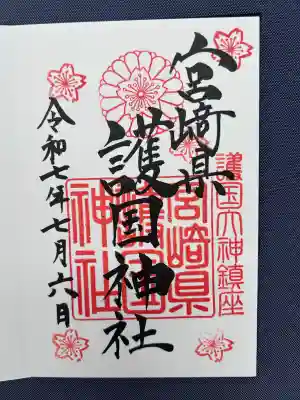 護国大神鎮座
宮崎県
護国神社
宮崎県
護国
神社
令和七年七月六日